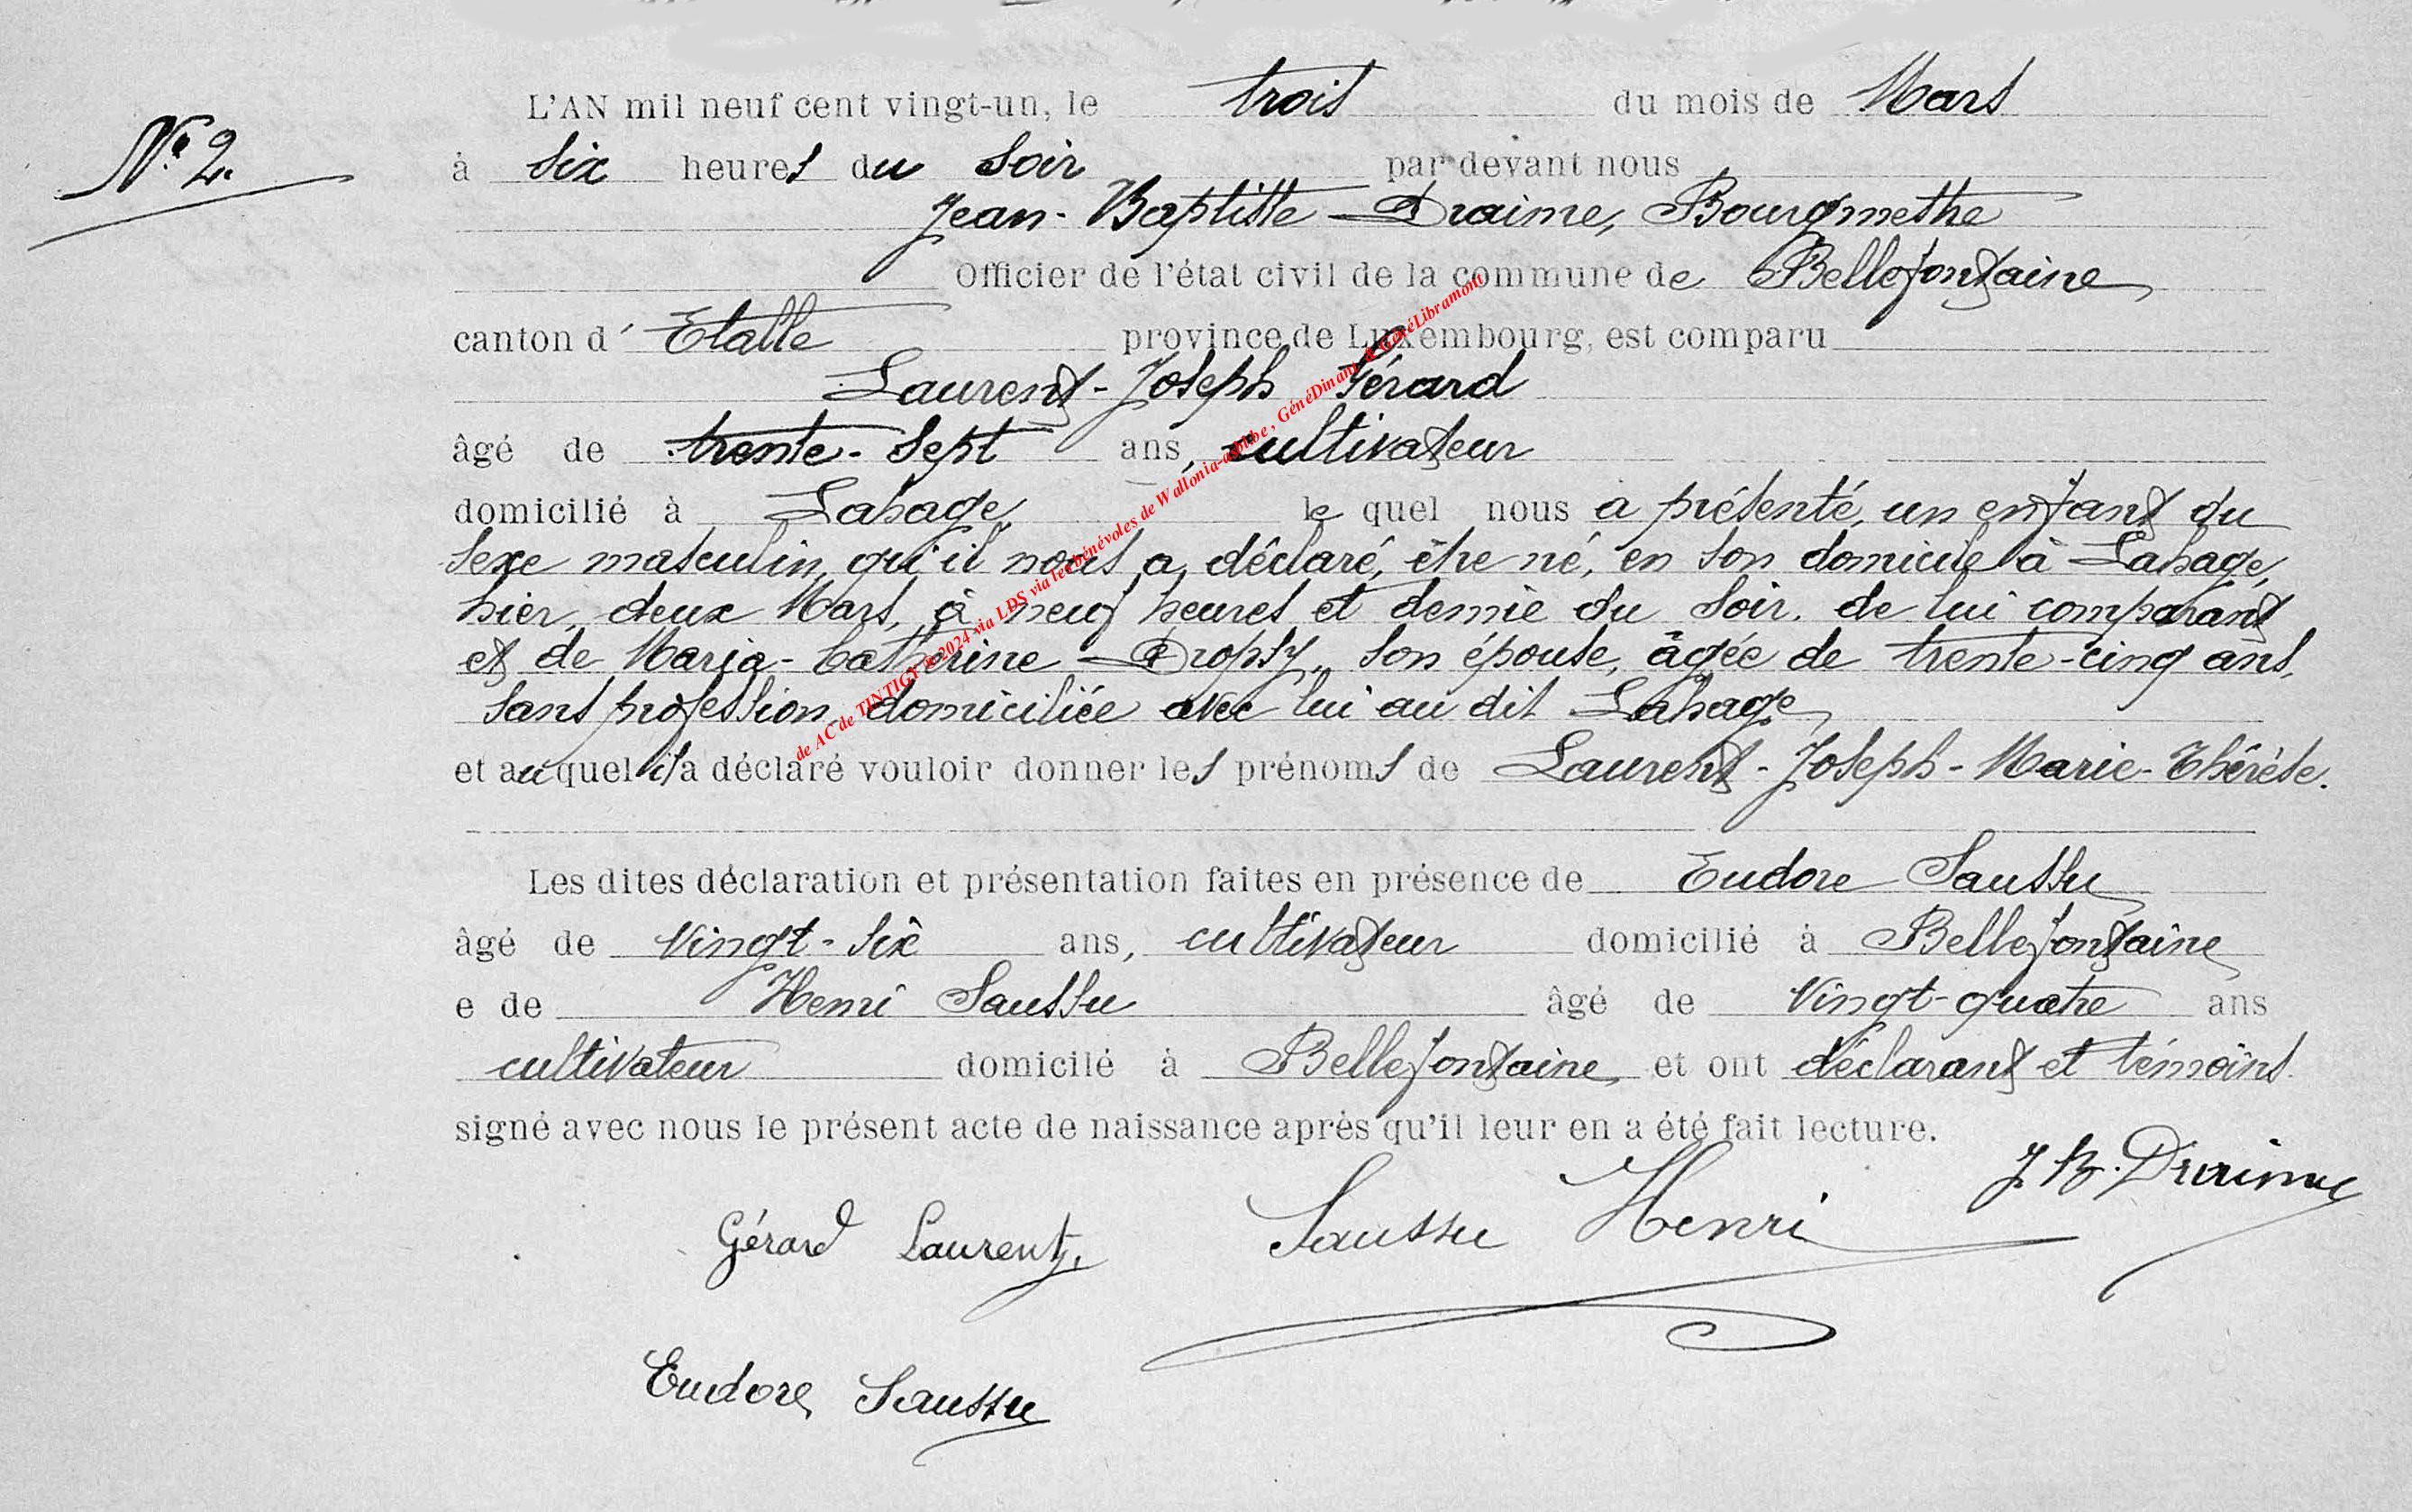 N° 2.
L'AN mil neuf cent vingt-un, le trois du mois de Mars
à six heures du soir par devant nous
Jean-Baptiste Draime, Bourgmestre
Officier de l'état civil de la commune de Bellefontaine
canton d' Etalle province de Luxembourg, est comparu
Laurent-Joseph Gérard
âgé de trente-sept ans, cultivateur
domicilié à Lahage, le quel nous a présenté, un enfant du
sexe masculin, qu'il nous a déclaré, être né, en son domicile à Lahage,
hier, deux Mars, à neuf heures et demie du soir. de lui comparant
et de Maria-Catherine Dropsy, son épouse, âgée de trente-cinq ans,
sans profession, domiciliée avec lui au dit Lahage,
et au quel il a déclaré vouloir donner les prénoms de Laurent-Joseph-Marie-Thérèse.
Les dites déclaration et présentation faites en présence de Eudore Saussu
âgé de vingt-six ans, cultivateur domicilié à Bellefontaine
e de Henri Saussu âgé de vingt-quatre ans
cultivateur domicilé à Bellefontaine, et ont déclarant et témoins
signé avec nous le présent acte de naissance après qu'il leur en a été fait lecture.
J. B. Draime
Gérard Laurent, Saussu Henri
Eudore Saussu
de AC de TINTIGY ® 2024 via LDS via les bénévoles de Wallonia-asbl.be, GénéDinant & GénéLibramont